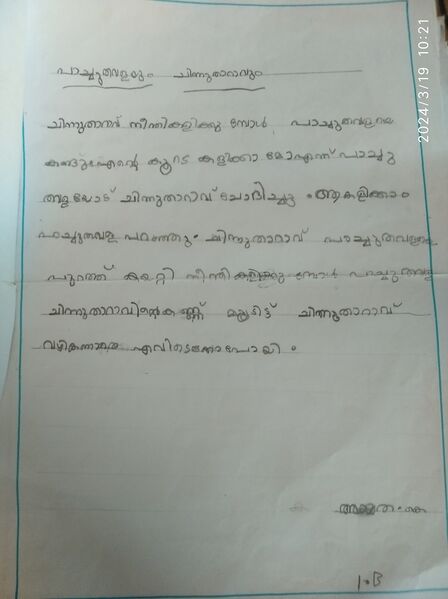 പാച്ചുതവളയും ചിന്നുതാറാവും
ചിന്നുതാറാവ് നീന്തികളിക്കു മ്പോൾ പാച്ചുതവളയെ
കണ്ടു എന്റെ കൂടെ കളിക്കാ മോഎന്ന് പാച്ചു
തവളയോട് ചിന്നുതാറാവ് ചോദിച്ചു. ആകളിക്കാം
പാച്ചുതവള പറഞ്ഞു. ചിന്നുതാറാവ് പാച്ചുതവളയെ
പുറത്ത് കയറ്റി നീന്തി കളിക്കു മ്പോൾ പാച്ചുതവള
ചിന്നുതാറാവിന്റെകണ്ണ് മൂടിട്ട് ചിന്നുതാറാവ്
വഴികാണാതെ എവിടെക്കോപോയി.
1.B
2024/3/19 10:21